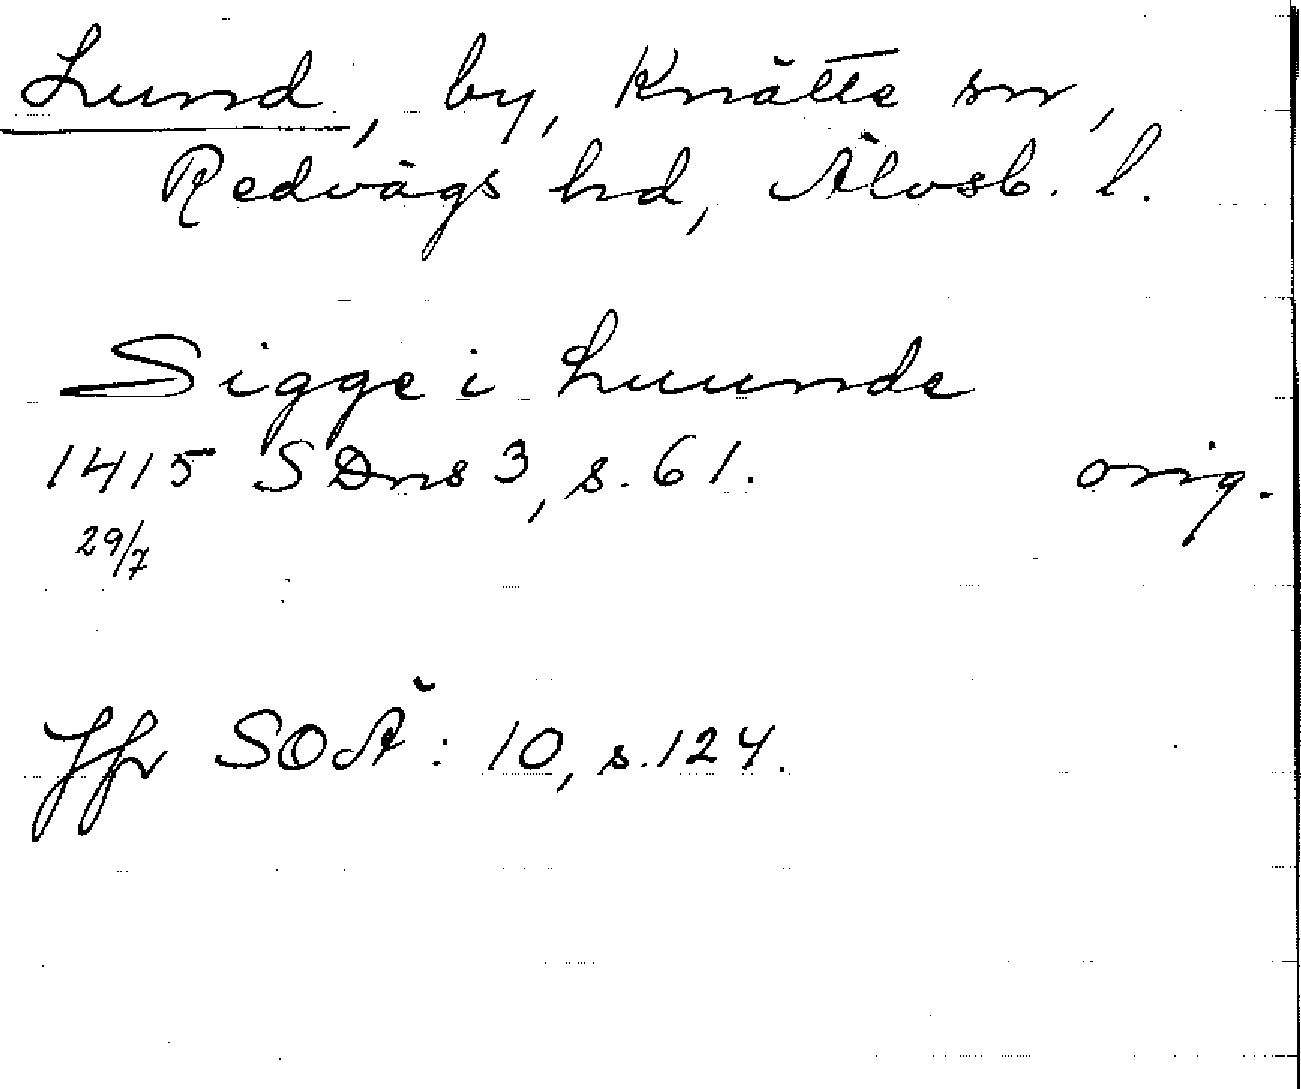 Lund, by, Knätte sn,
Redvägs hd, Älvsb. l.
Sigge i Luunde
1415 SDns 3, s. 61. orig.
29/7
Jfr SOÄ: 10, s. 124.